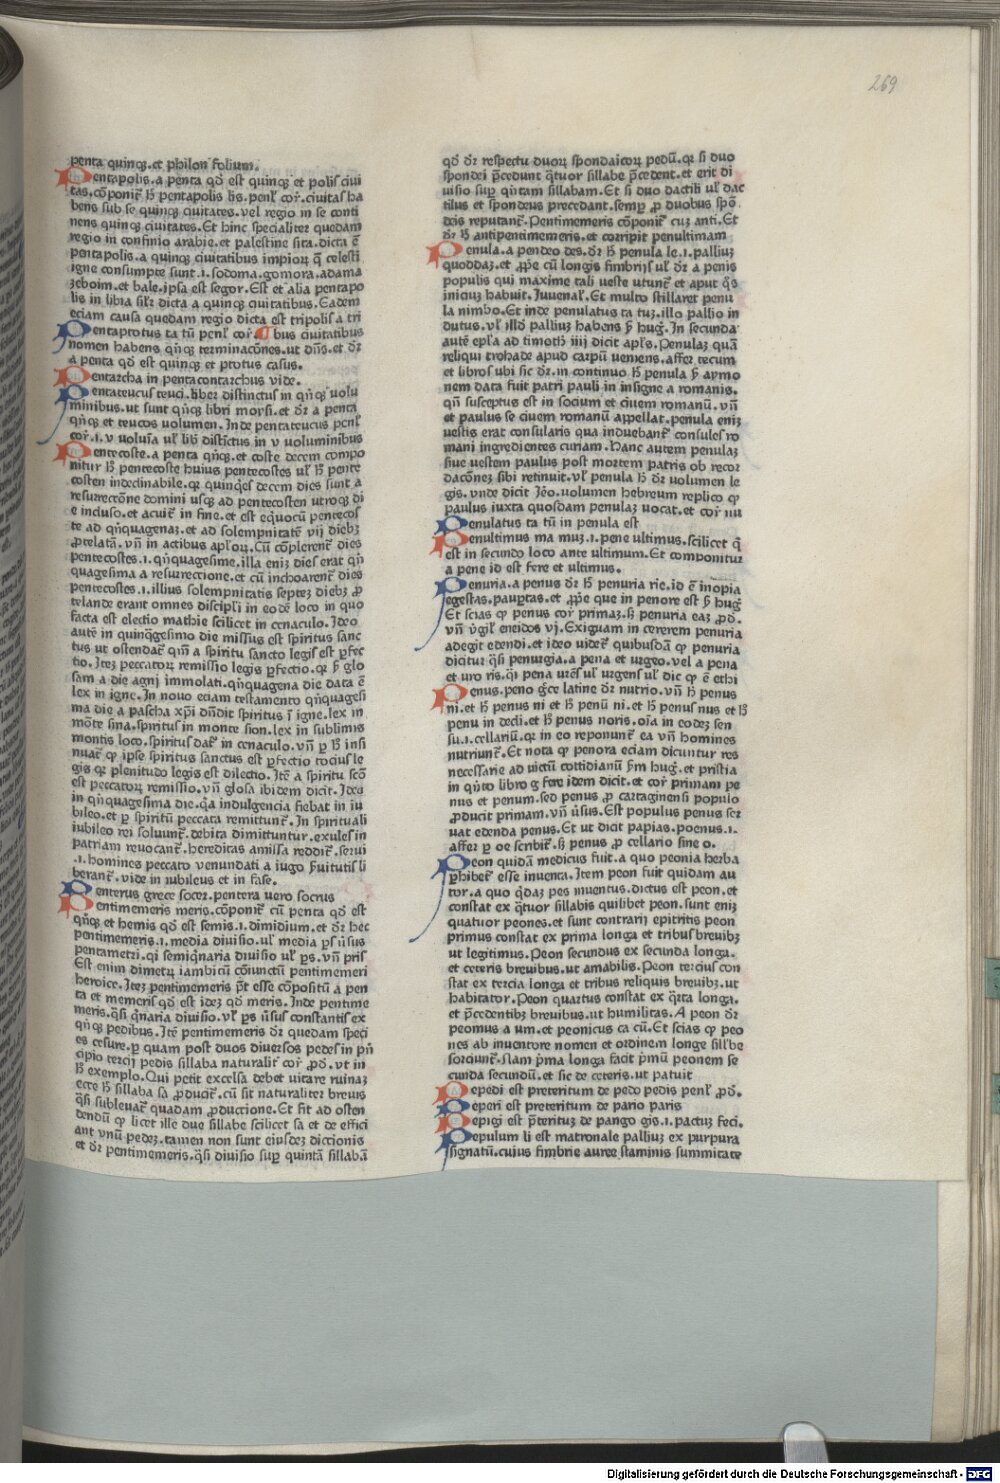 269
penta quinqꝫ.et philon folium.
Pentapolis.a penta qd̄ est quinqꝫ et polis ciui
tas.cōponit᷑ h̄ pentapolis lis.penl̄ cor̄.ciuitas ha
bens sub se quinqꝫ ciuitates.vel regio in se conti
nens quinqꝫ ciuitates.Et hinc specialiter quedam
regio in confinio arabie.et palestine sita.dicta ē
pentapolis.a quinqꝫ ciuitatibus impioꝝ q̄ celesti
igne consumpte sunt.i.sodoma.gomora.adama
zeboim.et bale.ipsa est segor.Est et alia pentapo
lis in libia silr̄ dicta a quinqꝫ ciuitatibus.Eadem
eciam causa quedam regio dicta est tripolis a tri
Pentaprotus ta tū penl̄ cor̄.¶ bus ciuitatibus
nomen habens qn̄qꝫ terminacōnes.ut dn̄s.et dr̄
a penta qd̄ est quinqꝫ et protus casus.
Pentarcha in pentacontarchus vide.
Pentateucus teuci.liber distinctus in qn̄qꝫ uolu
minibus.ut sunt qn̄qꝫ libri moysi.et dr̄ a penta
qn̄qꝫ et teucos uolumen.Inde pentateucus penl̄
cor̄.i.v uoluīa ul̄ lib̄ distīctus.in v uoluminibus
Pentecoste.a penta qn̄qꝫ.et coste decem compo
nitur h̄ pentecoste huius pentecostes ul̄ h̄ pente
costen indeclinabile.qꝛ quinq̄ies decem dies sunt a
resurrectōne domini usqꝫ ad pentecosten utroqꝫ di
e incluso.et acuit᷑ in fine.et est equocū pentecos
te ad qn̄quagenaꝫ.et ad solempnitatē vij diebꝫ
ꝓtelatā.vn̄ in actibus apl'oꝝ.Cū cōplerent᷑ dies
pentecostes.i.qn̄quagesime.illa eniꝫ dies erat qn̄
quagesima a resurrectione.et cū inchoarent᷑ dies
pentecostes.i.illius solempnitatis septeꝫ diebꝫ ꝓ
telande erant omnes discipl'i in eodē loco in quo
facta est electio mathie scilicet in cenaculo.Ideo
autē in quinq̄gesimo die missus est spiritus sanc
tus ut ostendat᷑ qm̄ a spiritu sancto legis est ꝑfec
tio.Iteꝫ peccatoꝝ remissio legis ꝑfectio.qꝛ ẜ glo
sam a die agni immolati.qn̄quagena die data ē
lex in igne.In nouo eciam testamento qn̄quagesi
ma die a pascha xp̄i dn̄dit spiritus ī igne.lex in
mōte sina.spiritus in monte sion.lex in sublimis
montis loco.spiritus dat᷑ in cenaculo.vn̄ ꝑ h̄ insi
nuat᷑ ꝙ ipse spiritus sanctus est ꝑfectio tocius le
gis qꝛ plenitudo legis est dilectio.Itē a spiritu scō
est peccatoꝝ remissio.vn̄ glosa ibidem dicit.Ideo
in qn̄quagesima die.q̄a indulgencia fiebat in iu
bileo.et ꝑ spiritū peccata remittunt᷑.In spirituali
iubileo rei soluunt᷑.debita dimittuntur.exules in
patriam reuocant᷑.hereditas amissa reddit᷑.serui
.i.homines peccato venundati a iugo ẜuitutis li
berant᷑.vide in iubileus et in fase.
Penterus grece socer.pentera uero socrus
Pentimemeris meris.cōponit᷑ cū penta qd̄ est
qn̄qꝫ et hemis qd̄ est semis.i.dimidium.et dr̄ hec
pentimemeris.i.media diuisio.ul̄ media ꝑs ūsus
pentametri.qi semiq̄naria diuisio ul̄ ꝑs.vn̄ pris'
Est enim dimetꝝ iambicū cōiunctū pentimemeri
heroice.Iteꝫ pentimemeris pt̄ esse cōpositū a pen
ta et memeris qd̄ est ideꝫ qd̄ meris.Inde pentime
meris.q̄si q̄naria diuisio.vl̄ ꝑs ūsus constantis ex
qn̄qꝫ pedibus.Itē pentimemeris dr̄ quedam speci
es cesure.ꝑ quam post duos diuersos pedes in pn̄
cipio tercij pedis sillaba naturalit᷑ cor̄ ꝓd̄.vt in
h̄ exemplo.Qui petit excelsa debet uitare ruinaꝫ
ecce h̄ sillaba sa ꝓducit᷑.cū sit naturaliter breuis
q̄si subleuat᷑ quadam ꝓductione.Et fit ad osten
dendū ꝙ licet ille due sillabe scilicet sa et de effici
ant vnū pedeꝫ.tamen non sunt eiusdeꝫ dictionis
et dr̄ pentimemeris.q̄si diuisio suꝑ quintā sillabā
qd̄ dr̄ respectu duoꝝ spondaicoꝝ pedū.qꝛ si duo
spondei p̄cedunt q̄tuor sillabe p̄cedent.et erit di
uisio suꝑ qn̄tam sillabam.Et si duo dactili ul̄ dac
tilus et spondeus precedant.semꝑ ꝓ duobus spō
deis reputant᷑.Pentimemeris cōponit᷑ cuꝫ anti.Et
dr̄ h̄ antipentimemeris.et corripit penultimam
Penula.a pendeo des.dr̄ h̄ penula le.i.palliuꝫ
quoddaꝫ.et ꝓpe cū longis fimbrijs ul̄ dr̄ a penis
populis qui maxime tali ueste utunt᷑ et aput q̄s
iniciuꝫ habuit.Iuuenal̄.Et multo stillaret penu
la nimbo.Et inde penulatus ta tuꝫ.illo pallio in
dutus.vl̄ illd̄ palliuꝫ habens ẜ huḡ.In secunda
autē epl'a ad timoth̄ iiij dicit apl's.Penulaꝫ quā
reliqui trohade apud carpū ueniens.affer tecum
et libros ubi sic dr̄.in continuo h̄ penula ẜ aymo
nem data fuit patri pauli in insigne a romanis.
qn̄ susceptus est in socium et ciuem romanū.vn̄
et paulus se ciuem romanū appellat.penula eniꝫ
uestis erat consularis qua induebant᷑ consules ro
mani ingredientes curiam.Hanc autem penulaꝫ
siue uestem paulus post mortem patris ob recor
dacōneꝫ sibi retinuit.vl̄ penula h̄ dr̄ volumen le
gis.vnde dicit Jēo.uolumen hebreum replico ꝙ
paulus iuxta quosdam penulaꝫ uocat.et cor̄ nu
Penulatus ta tū in penula est
Penultimus ma muꝫ.i.pene ultimus.scilicet q̄
est in secundo loco ante ultimum.Et componitur
a pene id est fere et ultimus.
Penuria.a penus dr̄ h̄ penuria rie.id ē inopia
egestas.pauꝑtas.et ꝓpe que in penore est ẜ huḡ
Et scias ꝙ penus cor̄ primaꝫ.s̄ penuria eaꝫ ꝓd̄.
vn̄ v̄gil̄ eneidos vj.Exiguam in cererem penuria
adegit edendi.et ideo uidet᷑ quibusdā ꝙ penuria
dicitur q̄si penurgia.a pena et urgeo.vel a pena
et uro ris.q̄i pena urēs ul̄ urgens ul̄ dic ꝙ ē ethi
Penus.peno gr̄ce latine dr̄ nutrio.vn̄ h̄ penus
ni.et h̄ penus ni et h̄ penū ni.et h̄ penus nus et h̄
penu in decli.et h̄ penus noris.oīa in eodeꝫ sen
su.i.cellariū.qꝛ in eo reponunt᷑ ea vn̄ homines
nutriunt᷑.Et nota ꝙ penora eciam dicuntur res
necessarie ad uictū cottidianū ẜm huḡ.et pristia
in qn̄to libro g fere idem dicit.et cor̄ primani pe
nus et penum.sed penus ꝓ cartaginensi populo
ꝓducit primam.vn̄ ūsus.Est populus penus ser
uat edenda penus.Et ut dicit papias.poenus.i.
affer ꝑ oe scribit᷑.s̄ penus ꝓ cellario sine o.
Peon quidā medicus fuit.a quo peonia herba
ꝑhibet᷑ esse inuenta.Item peon fuit quidam au
tor.a quo q̄daꝫ pes inuentus.dictus est peon.et
constat ex q̄tuor sillabis quilibet peon.sunt eniꝫ
quatuor peones.et sunt contrarij epitritis peon
primus constat ex prima longa et tribus breuibꝫ
ut legitimus.Peon secundus ex secunda longa.
et ceteris breuibus.ut amabilis.Peon tercius con
stat ex tercia longa et tribus reliquis breuibꝫ.ut
habitator.Peon quartus constat ex q̄rta longa.
et p̄cedentibꝫ breuibus.ut humilitas.A peon dr̄
peomus a um.et peonicus ca cū.Et scias ꝙ peo
nes ab inuentore nomen et ordinem longe sill'be
sorciunt᷑.Nam p̄ma longa facit p̄mū peonem se
cunda secundū.et sic de ceteris.ut patuit
Pepedi est preteritum de pedo pedis penl̄ ꝓd̄.
Peperi est preteritum de pario paris
Pepigi est p̄teritus de pango gis.i.pactus feci.
Pepulum li est matronale palliuꝫ ex purpura
signatū.cuius fimbrie auree staminis summitate
Digitalisierung gefördert durch die Deutsche Forschungsgemeinschaft - DFG